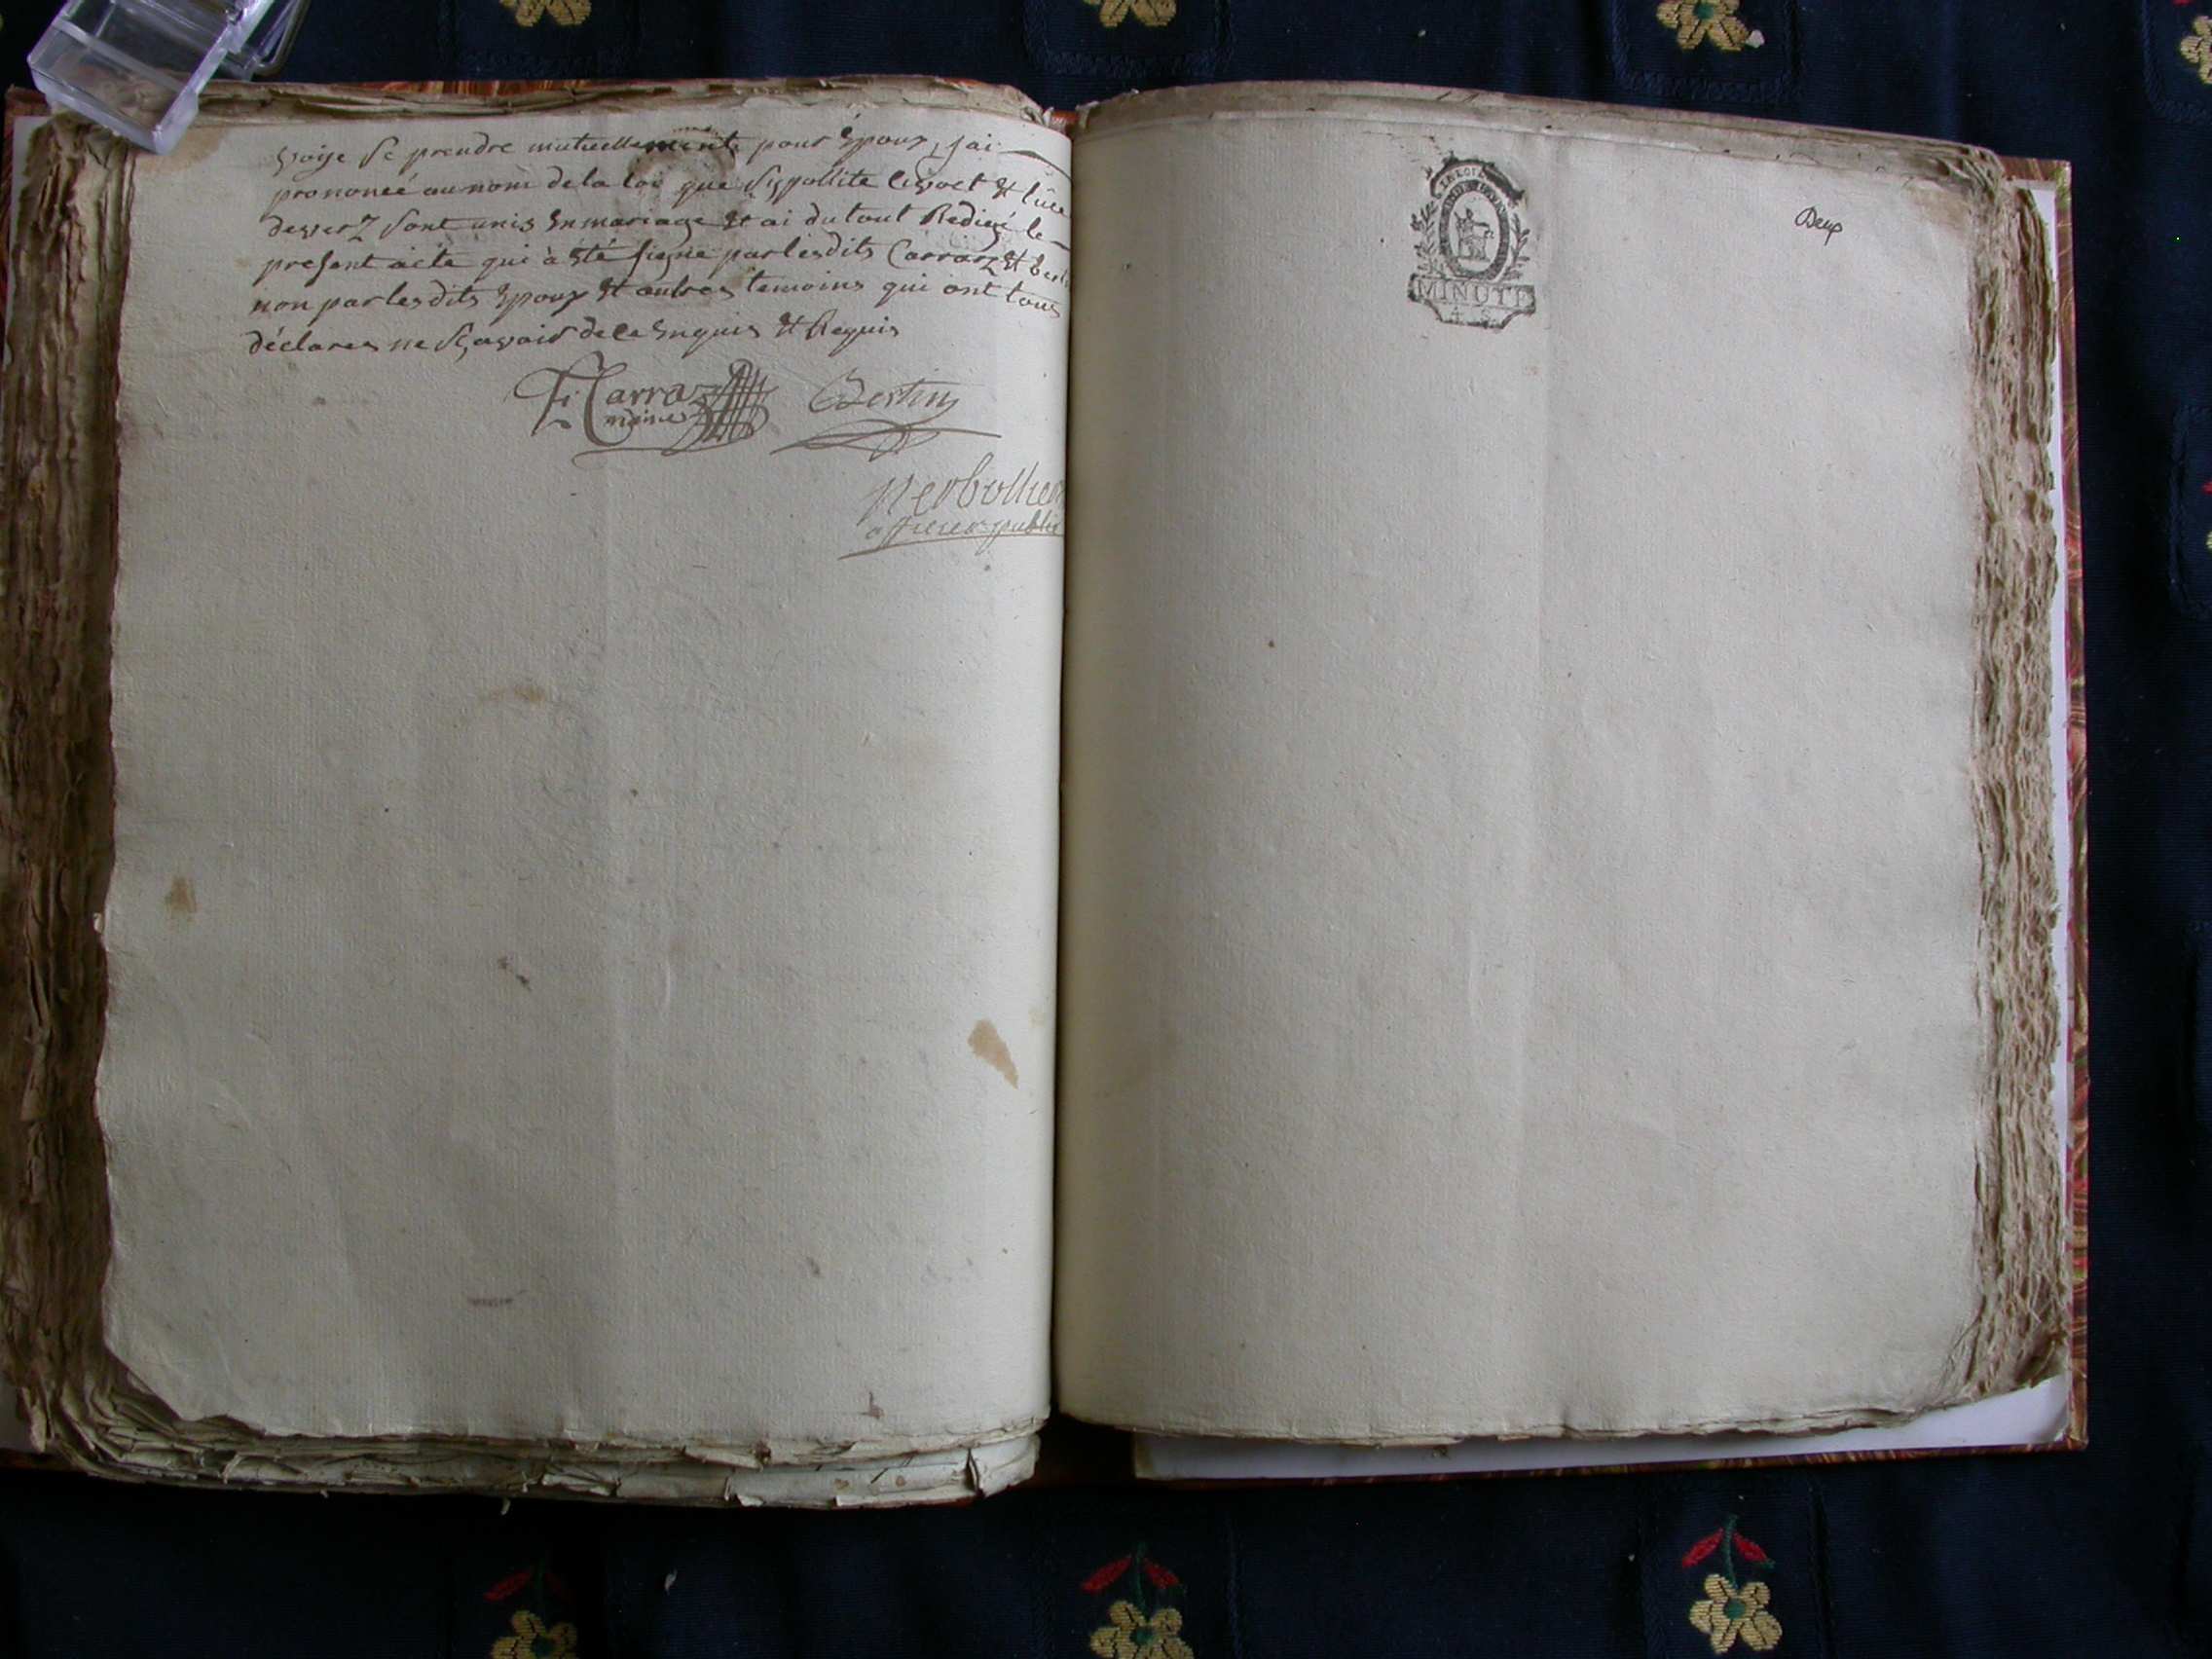 voije se prendre mutuellement pour époux, jai
prononcé au nom de la loi que hyppollite et
sont unis en mariage et ai du tout Redigé le
present acte qui à été signé par lesdits Carraz et
non par lesdits époux et autres temoins qui ont tous
déclarer ne sçavoir de ce enquis et Requis
Carraz Bertin
maire
officier public
Deux
MINUTE
4 S.